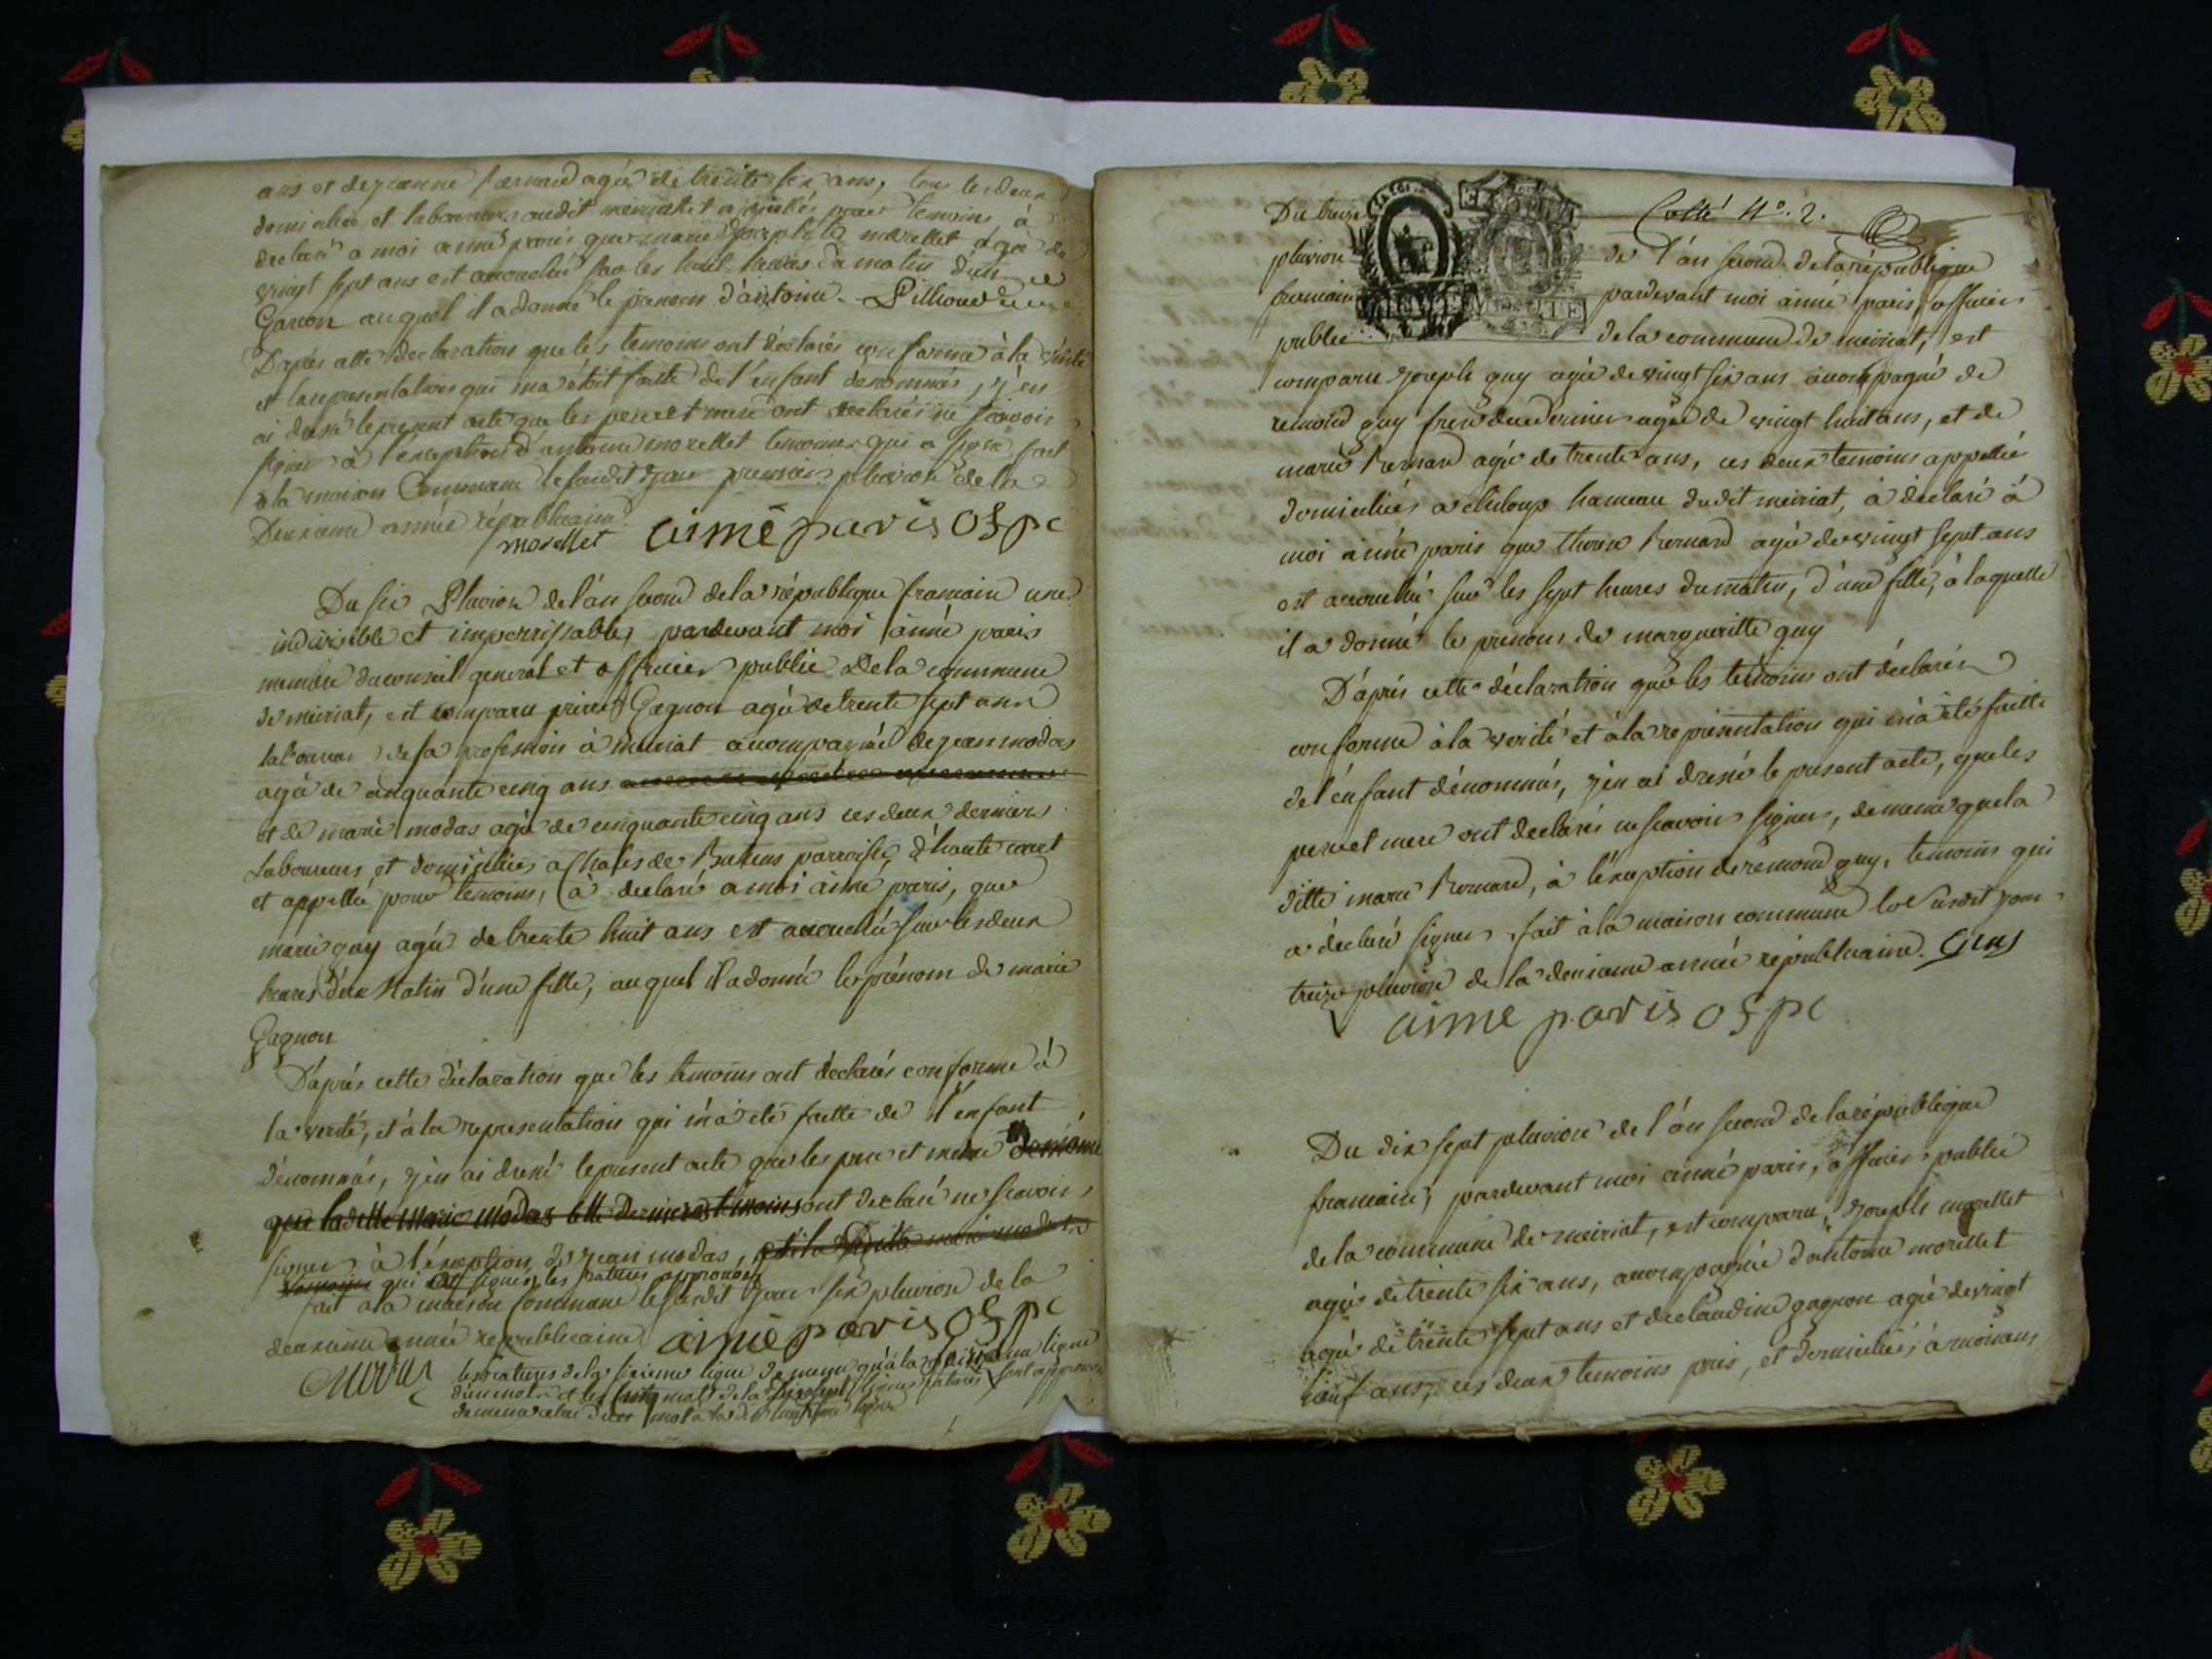 ans et de jeanne bernard agée de trente six ans, tous les deux
domiciliés et laboureurs audit meiriat et appellés pour temoins, à
declaré a moi aimé paris que marie josephte morellet agée de
vingt sept ans est accouchée sur les huit heures du matin d'un
Garcon auquel il a donné le prenom d'antoine
D'aprés cette declaration que les temoins ont déclarés conforme à la vérité
et la representation qui m'a étoit faitte de l'enfant denommés, j'en
ai dressé le present acte que les pere et mere ont declarés ne scavoir
signer à l'exeption d'antoine morellet temoins qui a signé fait
a la maison Commune le susdit jour premier pluviose de la
Deuxieme année républicaine.
morellet aimé paris ofpc
Du six Pluviose de l'an second de la république francaise une
indivisible et imperrissable, pardevant moi aimé paris
membre du conseil general et officier public De la commune
de meiriat, est comparu Gagnon agé de trente sept ans
laboureur de sa profession à meiriat accompagné de jean modas
agé de cinquante cinq ans
et de marie modas agée de cinquante cinq ans ces deux derniers
Laboureurs et domiciliés a parroisse d'haute
et appellé pour temoins, à declaré a moi aimé paris, que
marie guy agée de trente huit ans est accouchée sur les deux
heures du Matin d'une fille, auquel il a donné le prénom de marie
Gagnon
D'aprés cette déclaration que les temoins ont declarés conforme à
la verité, et à la representation qui m'a été faitte de l'enfant
dénommés, j'en ai dressé le present acte que les pere et mere de même
que laditte Marie Modas cette derniere témoins ont declaré ne scavoir
signer à l'exeption de jean modas, et de la ditte marie modas
temoins qui ont signés les ratures approuvés
fait a la maison Commune le susdit jour six pluviose de la
deuxieme année republicaine aimé paris ofpc
les ratures de la sixieme ligne de meme qu'a la ligne
d'un mot et les cinq mots de la ligne raturés sont approuvés
de meme celui d'un mot a la ligne
Cotté N°. 2.
Du treize
pluviose de l'an second de la république
francaise pardevant moi aimé paris, officier
public de la commune de meiriat, est
comparu joseph guy agé de vingt six ans accompagné de
remond guy frere du dernier agé de vingt huit ans, et de
marie bernard agée de trente ans, ces deux temoins appellés
domiciliés a chiloup hameau dudit meiriat, à déclaré à
moi aimé paris que therese bernard agée de vingt sept ans
est accouchée sur les sept heures du matin, d'une fille, à laquelle
il a donné le prenom de margueritte guy
D'aprés cette déclaration que les témoins ont déclarés
conforme à la verité et à la représentation qui m'a été faitte
de l'énfant dénommés, j'en ai dressé le present acte, que les
pere et mere ont declarés ne scavoir signer, de meme que la
ditte marie bernard, à l'éxeption de remond guy, temoins qui
a déclaré signer, fait à la maison commune le susdit jour
treize pluviose de la deuxieme année républicaine. Guy
aimé paris ofpc
Du dix sept pluviose de l'an second de la république
francaise, pardevant moi aimé paris, officier public
de la commune de meiriat, est comparu, joseph morellet
agé de trente six ans, accompagné d'antoine morellet
agé de trente sept ans et de claudine gagnon agée de vingt
neuf ans, ces deux temoins pris, et domiciliés, à